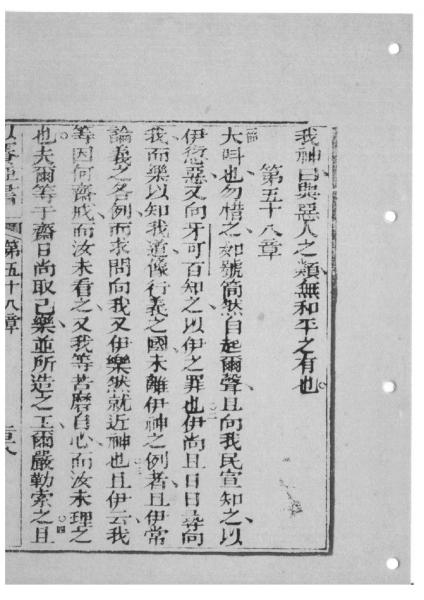 我神曰與惡人之類無和平之有也
第五十八章
大叫也勿惜之如號筒然自起爾聲且向我民宣知之以
伊愆惡又向牙可百知之以伊之罪也伊尚且日日尋向
我而樂以知我道像行義之國未離伊神之例者且伊常
論義之各例而求問向我又伊樂然就近神也且伊云我
等因何齋戒而汝未看之又我等苦磨自心而汝未理之
也夫爾等于齋日尚取己樂並所造之工爾嚴勒索之且
第五十八章